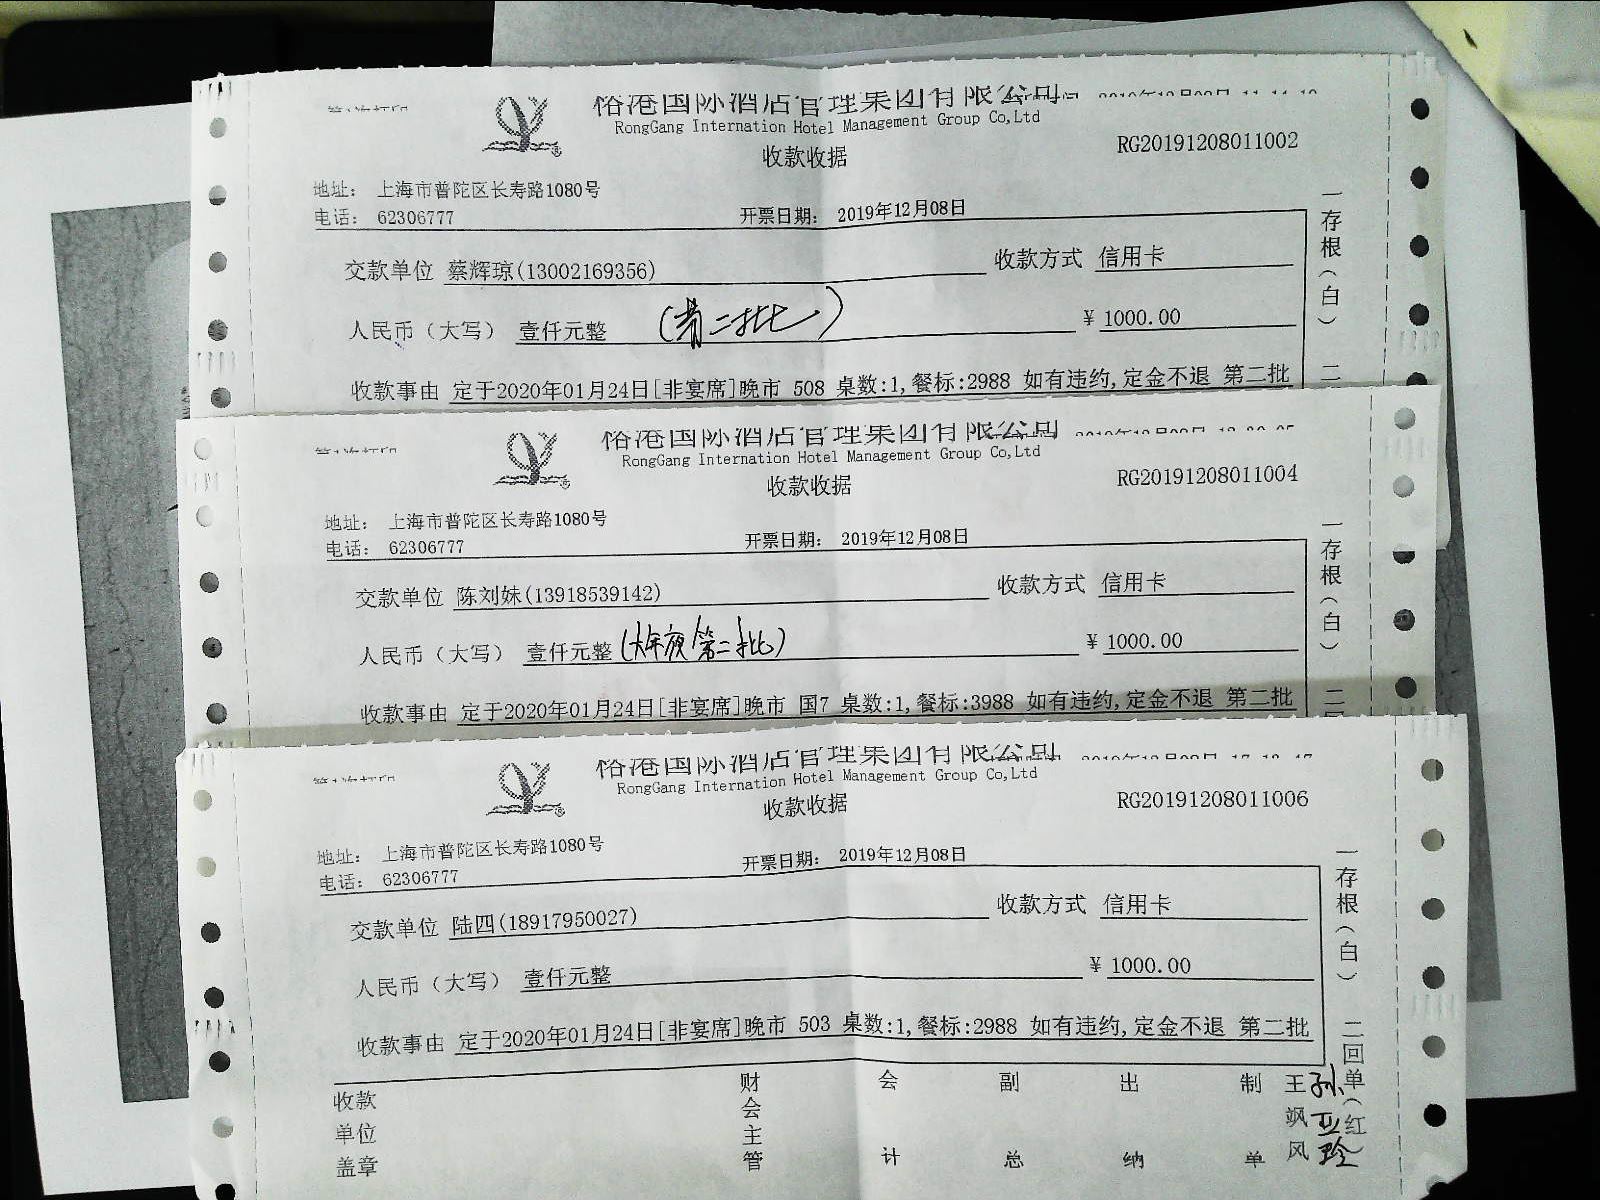 国际酒店管理集团有限公司
RongGang Internation Hotel Management Group Co,Ltd
收款收据
RG20191208011002
地址： 上海市普陀区长寿路1080号
电话： 62306777 开票日期： 2019年12月08日
交款单位 蔡辉琼(13002169356) 收款方式 信用卡
人民币（大写） 壹仟元整 二批） ¥ 1000.00
收款事由 定于2020年01月24日[非宴席]晚市 508 桌数:1,餐标:2988 如有违约,定金不退 第二批
一存根（白） 二
国际酒店管理集团有限公司
RongGang Internation Hotel Management Group Co,Ltd
收款收据
RG20191208011004
地址： 上海市普陀区长寿路1080号
电话： 62306777 开票日期： 2019年12月08日
交款单位 陈刘妹(13918539142) 收款方式 信用卡
人民币（大写） 壹仟元整 (大年夜第二批) ¥ 1000.00
收款事由 定于2020年01月24日[非宴席]晚市 国7 桌数:1,餐标:3988 如有违约,定金不退 第二批
一存根（白） 二
国际酒店管理集团有限公司
RongGang Internation Hotel Management Group Co,Ltd
收款收据
RG20191208011006
地址： 上海市普陀区长寿路1080号
电话： 62306777 开票日期： 2019年12月08日
交款单位 陆四(18917950027) 收款方式 信用卡
人民币（大写） 壹仟元整 ¥ 1000.00
收款事由 定于2020年01月24日[非宴席]晚市 503 桌数:1,餐标:2988 如有违约,定金不退 第二批
一存根（白） 二回单（红）
收款单位盖章 财会主管 会计 副总 出纳 制单 王飒风 孙亚玲